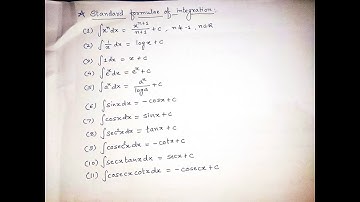 * Standard formulae of integration.
(1) ∫xⁿdx = xⁿ⁺¹/n+1 + c, n≠-1, n∈R
(2) ∫1/x dx = logx + c
(3) ∫1dx = x + c
(4) ∫eˣdx = eˣ + c
(5) ∫aˣdx = aˣ/loga + c
(6) ∫sinxdx = -cosx + c
(7) ∫cosxdx = sinx + c
(8) ∫sec²xdx = tanx + c
(9) ∫cosec²xdx = -cotx + c
(10) ∫secxtanxdx = secx + c
(11) ∫cosecxcotxdx = -cosecx + c